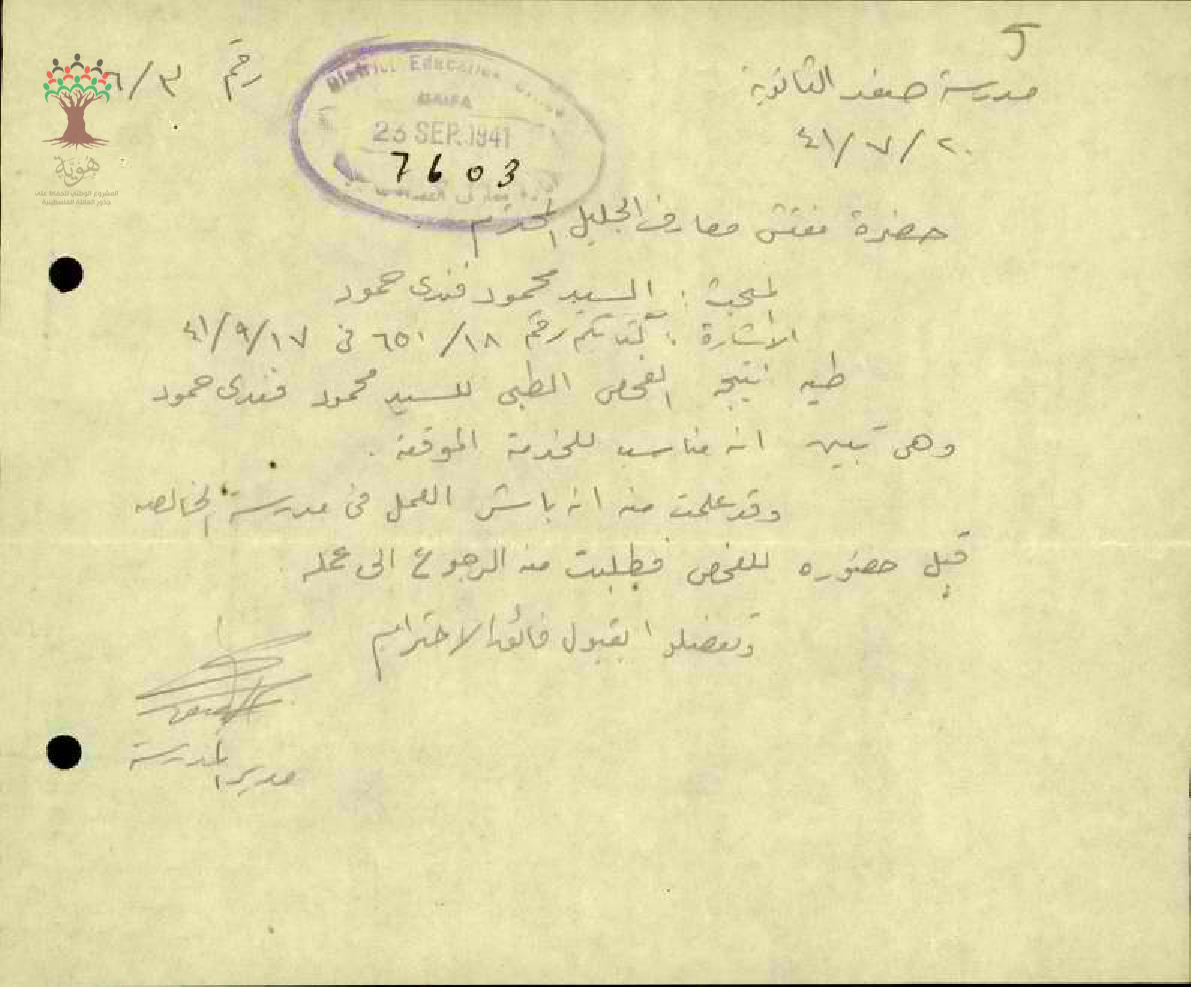 5
مدرسة صفد الثانوية
رقم ٦/٣
٢٠/٧/٤١
District Education Office
HAIFA
23 SEP. 1941
7603
هوية
المشروع الوطني للحفاظ على
جذور العائلة الفلسطينية
حضرة مفتش معارف الجليل المحترم
المبحث : السيد محمود فندى حمود
الاشارة : كتابكم رقم ٦٥١/١٨ في ٤١/٩/١٧
طيه نتيجة الفحص الطبي للسيد محمود فندى حمود
وهى تبين انه مناسب للخدمة الموقتة .
وقد علمت منه انه باشر العمل في مدرسة الخالصه
قبل حضوره للفحص فطلبت منه الرجوع الى عمله
وتفضلوا بقبول فائق الاحترام
مدير المدرسة